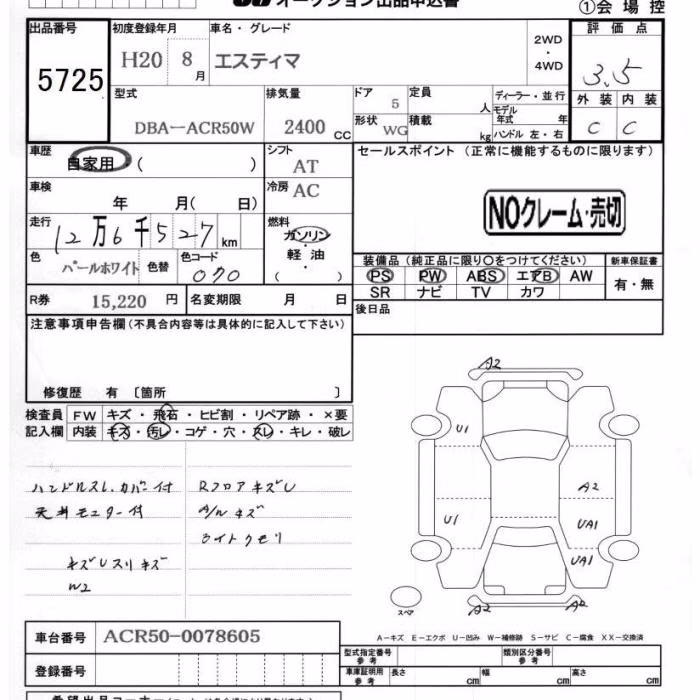 オークション出品申込書
①会場控
出品番号
5725
初度登録年月
H20 8月
車名・グレード
エスティマ
2WD
・
4WD
評価点
3.5
外装 内装
C C
型式
DBA－ACR50W
排気量
2400 CC
ドア 5
形状 WG
定員 人
積載 kg
ディーラー・並行
モデル年式 年
ハンドル 左・右
車歴
自家用 ( )
シフト
AT
セールスポイント (正常に機能するものに限ります)
車検
年 月( 日)
冷房
AC
NOクレーム・売切
走行
12万6千527km
燃料
ガソリン
・
軽油
( )
色
パールホワイト
色替
色コード
070
装備品 (純正品に限り○をつけてください)
PS PW ABS エアB AW
SR ナビ TV カワ
新車保証書
有・無
R券 15,220 円
名変期限 月 日
後日品
注意事項申告欄 (不具合内容等は具体的に記入して下さい)
修復歴 有 〔箇所 〕
検査員記入欄
FW キズ・飛石・ヒビ割・リペア跡・×要
内装 キズ・汚レ・コゲ・穴・スレ・キレ・破レ
ハンドルスレ カバー付
天井モニター付
キズUスリキズ
W2
Rフロアキズレ
A/Wキズ
ライトクモリ
A2
U1
U1
A2
UA1
UA1
A2
A2
スペア
A－キズ E－エクボ U－凹み W－補修跡 S－サビ C－腐食 XX－交換済
車台番号 ACR50-0078605
登録番号
型式指定番号 参考
類別区分番号 参考
車庫証明用 参考
長さ cm
幅 cm
高さ cm